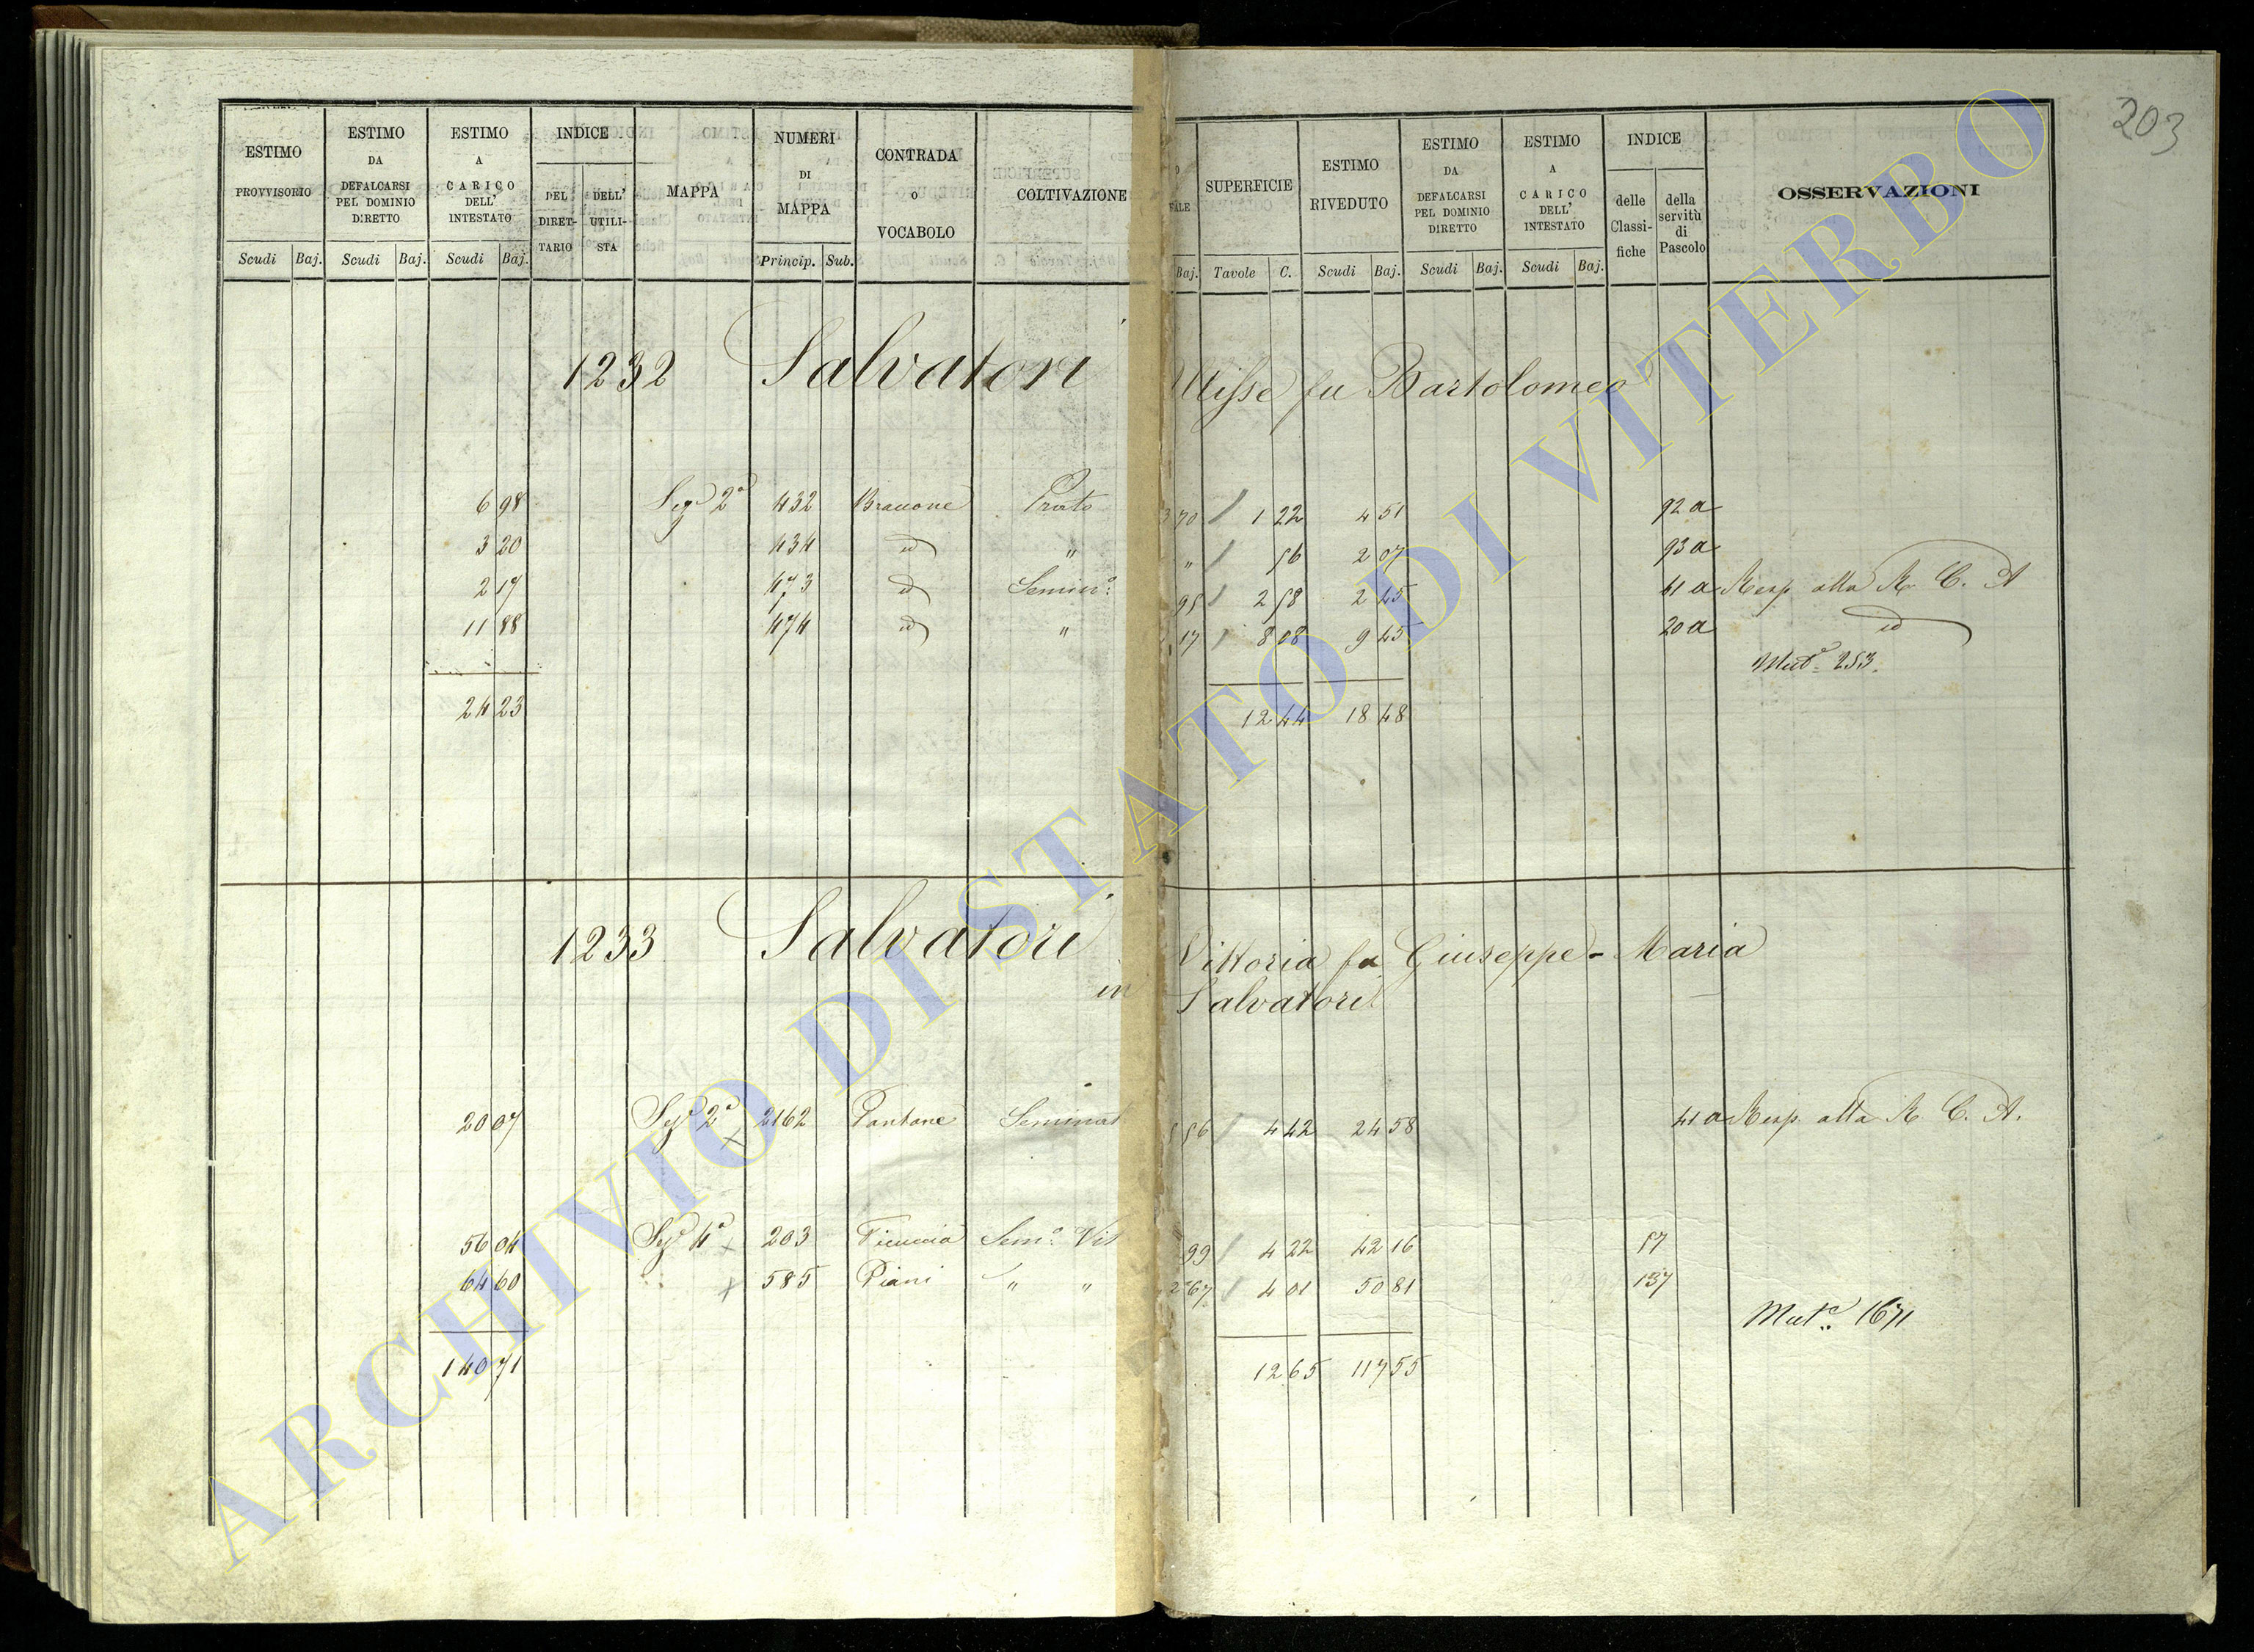 203
ESTIMO PROVVISORIO
ESTIMO DA DEFALCARSI PEL DOMINIO DIRETTO
ESTIMO A CARICO DELL' INTESTATO
INDICE
DEL DIRET-TARIO
DELL' UTILI-STA
MAPPA
NUMERI DI MAPPA
CONTRADA o VOCABOLO
COLTIVAZIONE
SUPERFICIE
ESTIMO RIVEDUTO
ESTIMO DA DEFALCARSI PEL DOMINIO DIRETTO
ESTIMO A CARICO DELL' INTESTATO
INDICE
delle Classi-fiche
della servitù di Pascolo
OSSERVAZIONI
Scudi Baj. Scudi Baj. Scudi Baj. Princip. Sub. Baj. Tavole C. Scudi Baj. Scudi Baj. Scudi Baj.
1232 Salvatori Ulisse fu Bartolomeo
6 98 Sez 2a 432 Prato 70 1 22 4 51 92 a
3 20 434 id " " 56 2 07 93 a
2 17 473 id Semin.o 95 2 58 2 45 41 a Resp. alla R. C. A
11 88 474 id " 17 8 08 9 45 20 a id
Mut.e 253.
24 23 12 44 18 48
1233 Salvatori Vittoria fu Giuseppe-Maria
in Salvatori
20 07 Sez 2a 2162 Pantane Seminat 56 4 42 24 58 41 a Resp. alla R. C. A.
56 04 Sez 4a 203 Ficuccia Sem.o Vit 99 4 22 42 16 57
64 60 585 Piani " " 67 4 01 50 81 137
Mut.e 1671
140 71 12 65 117 55
ARCHIVIO DI STATO DI VITERBO